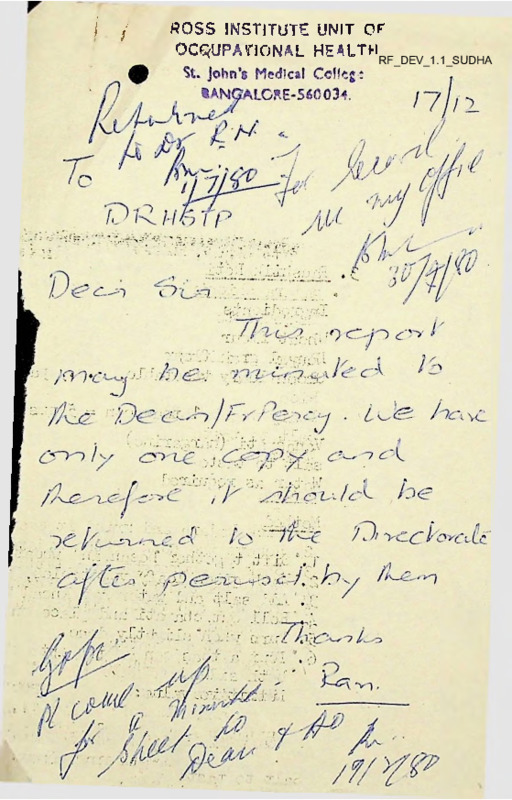 ROSS INSTITUTE UNIT OF
OCCUPATIONAL HEALTH
RF_DEV_1.1_SUDHA
St. John's Medical College
BANGALORE-560034.
17/12
Returned
to Dr R.N.
1/7/80
For Record
in my office
30/7/80
To
DRHSTP
Dear Sir
This report
may be minuted to
the Dean/Fr Percy. We have
only one copy and
therefore it should be
returned to the Directorate
after perusal by them
Thanks
Ravi.
Gopi
Pl come up
for a Minute
Sheet to
Dean & AO
19/7/80